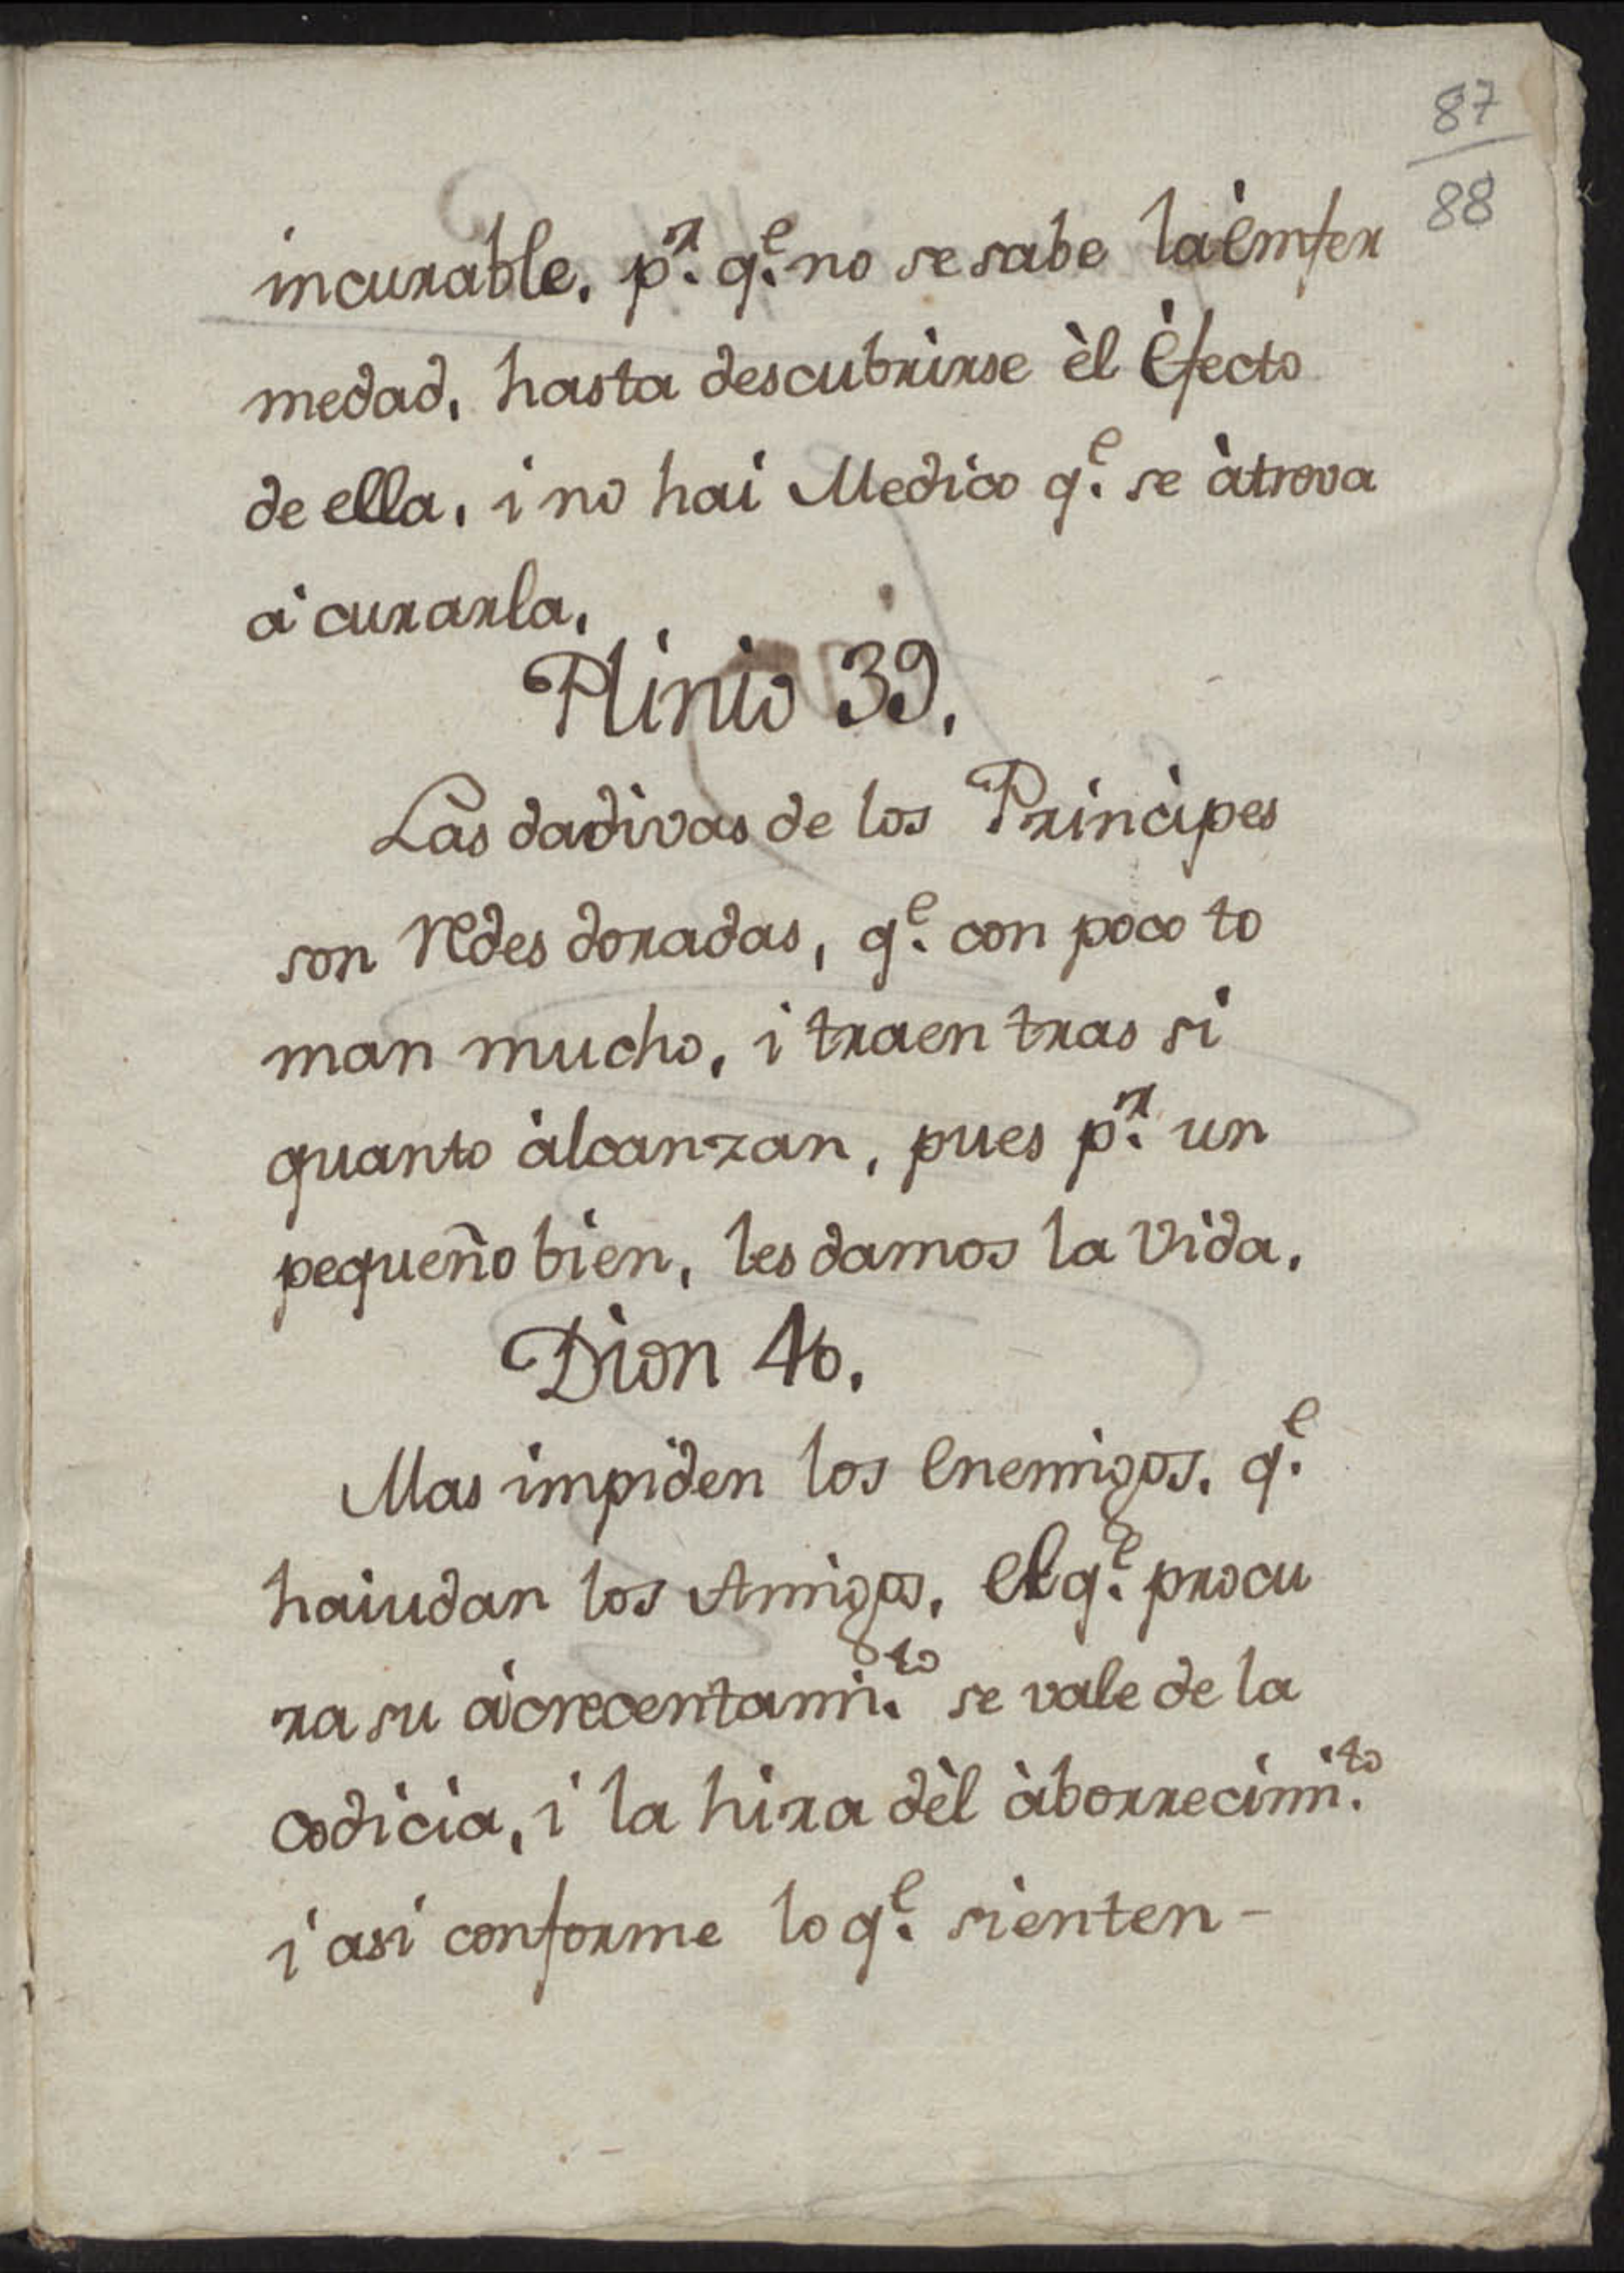 87
88
incurable. p.r q.e no se sabe la èmfer
medad, hasta descubrìrse èl èfecto
de ella, i no hai Medico q.e se àtreva
à curarla.
Plinio 39.
Las dadivas de los Principes
son redes doradas, q.e con poco to
man mucho, i traen tras si
quanto àlcanzan, pues p.r un
pequeño bien, les damos la vida.
Dion 40.
Mas impiden los enemigos. q.e
haiudan los Amigos, el q.e procu
ra su àcrecentami.to se vale de la
codicia, i la hira dèl àborrecimi.to
i asi conforme lo q.e sienten -